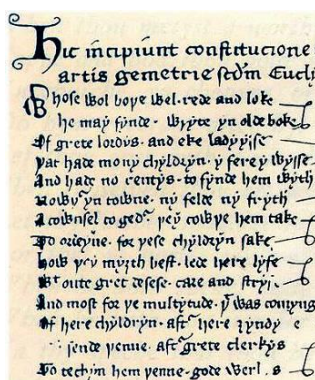 Hic incipiunt constitucione
artis gemetrie scdm Eucly
Whose wol boþe wel rede and loke
he may fynde wryte yn olde boke
Of grete lordys and eke ladyysse
þat hade mony chyldryn y fere y wysse
And hade no rentys to fynde hem wyth
Nowþr yn towne ny felde ny fryth
A cownsel togedr þey cowþe hem take
To ordeyne for þese chyldryn sake
how þey myȝth best lede here lyfe
Wt oute gret desese care and stryf
And most for þe multytude þt was comyng
Of here chyldryn aftr here
sende þenne aftr grete clerkys
To techyn hem þenne gode